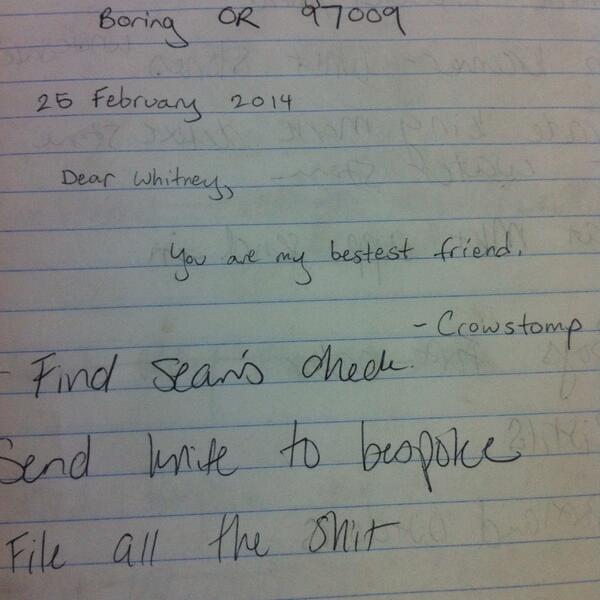 Boring OR 97009
25 February 2014
Dear Whitney,
You are my bestest friend.
- Crowstomp
- Find Sean's check.
Send knife to bespoke
File all the shit